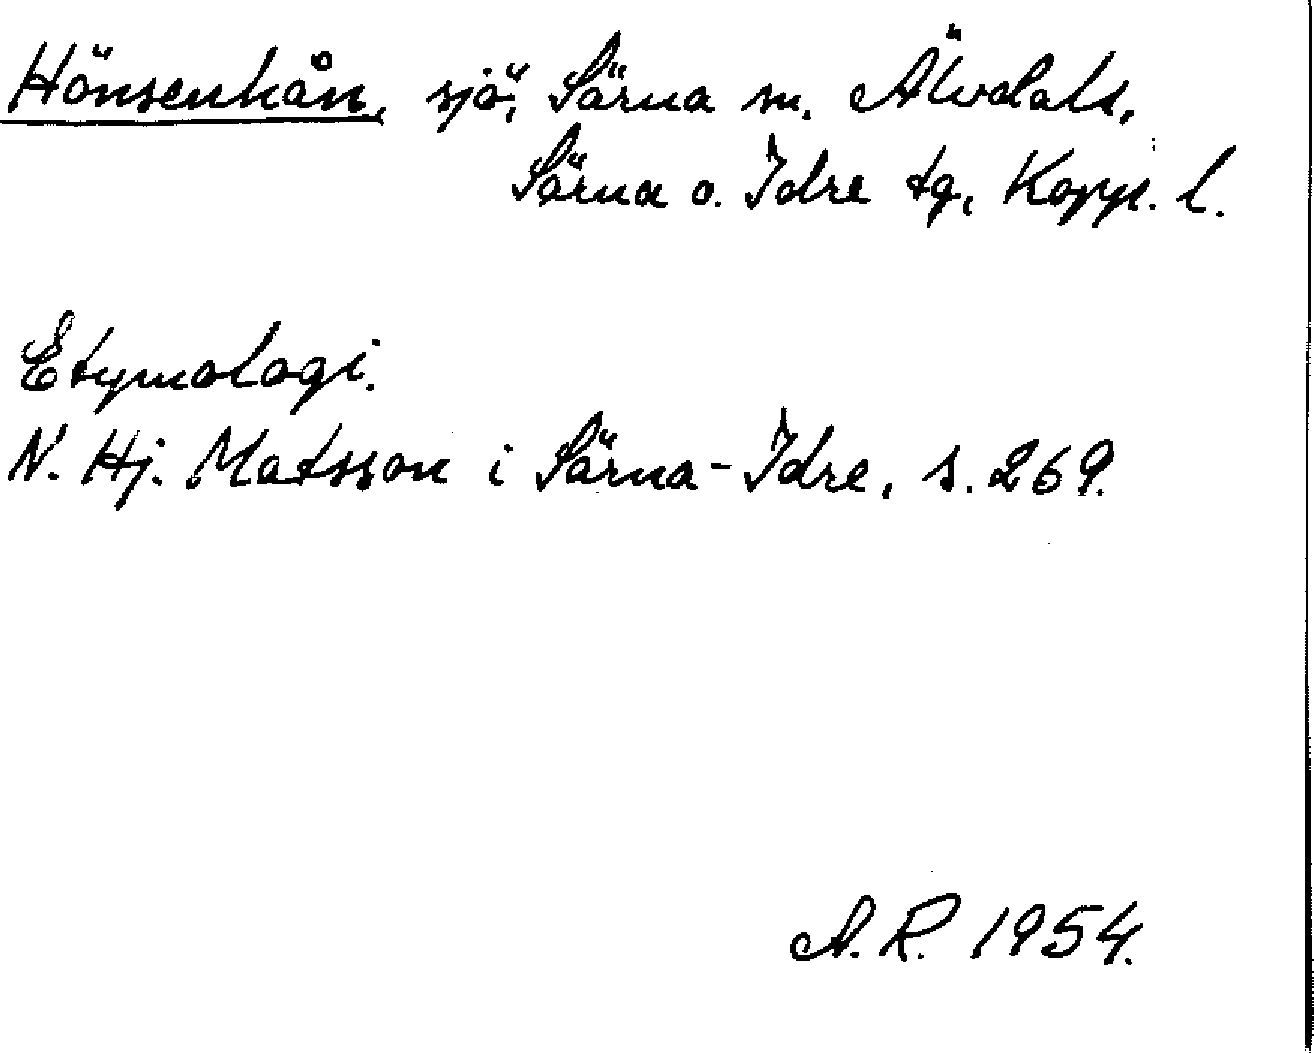 Hönsenhån, sjö, Särna sn. Älvdals,
Särna o. Idre tg, Kopp. l.
Etymologi.
N. Hj. Matsson i Särna-Idre, s. 269.
A.R. 1954.